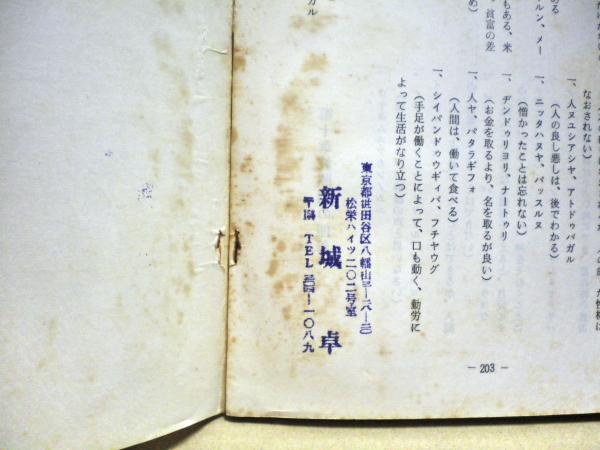 ルン、メー
もある、米
貧富の差
なおされない)
一、人ヌユシアシヤ、アトドゥバガル
(人の良し悪しは、後でわかる)
一、ニッタハヌヤ、バッスルヌ
(憎かったことは忘れない)
一、ヂンドゥリヨリ、ナートゥリ
(お金を取るより、名を取るが良い)
一、人ヤ、バタラギフォ
(人間は、働いて食べる)
一、シイバンドゥウギィバ、フチヤウグ
(手足が働くことによって、口も動く、勤労に
よって生活がなり立つ)
東京都世田谷区八幡山
松栄ハイツ二〇二号室
新城卓
TEL 一〇八九
- 203 -